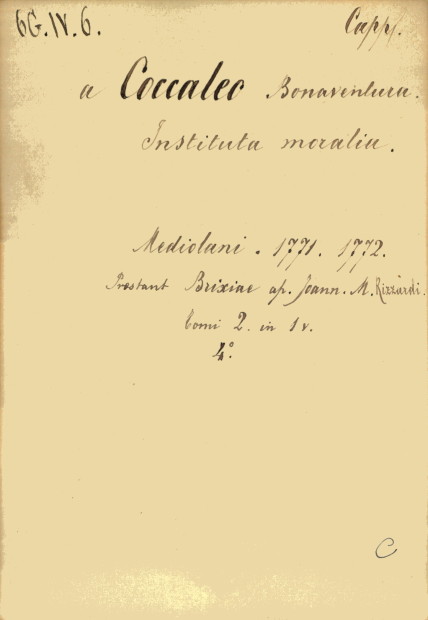 6G.IV.6. Capp.
a Coccaleo Bonaventura.
Instituta moralia.
Mediolani. 1771. 1772.
Præstant Brixiae ap. Joann. M. Rizzardi.
tomi 2. in 1 v.
4°.
C